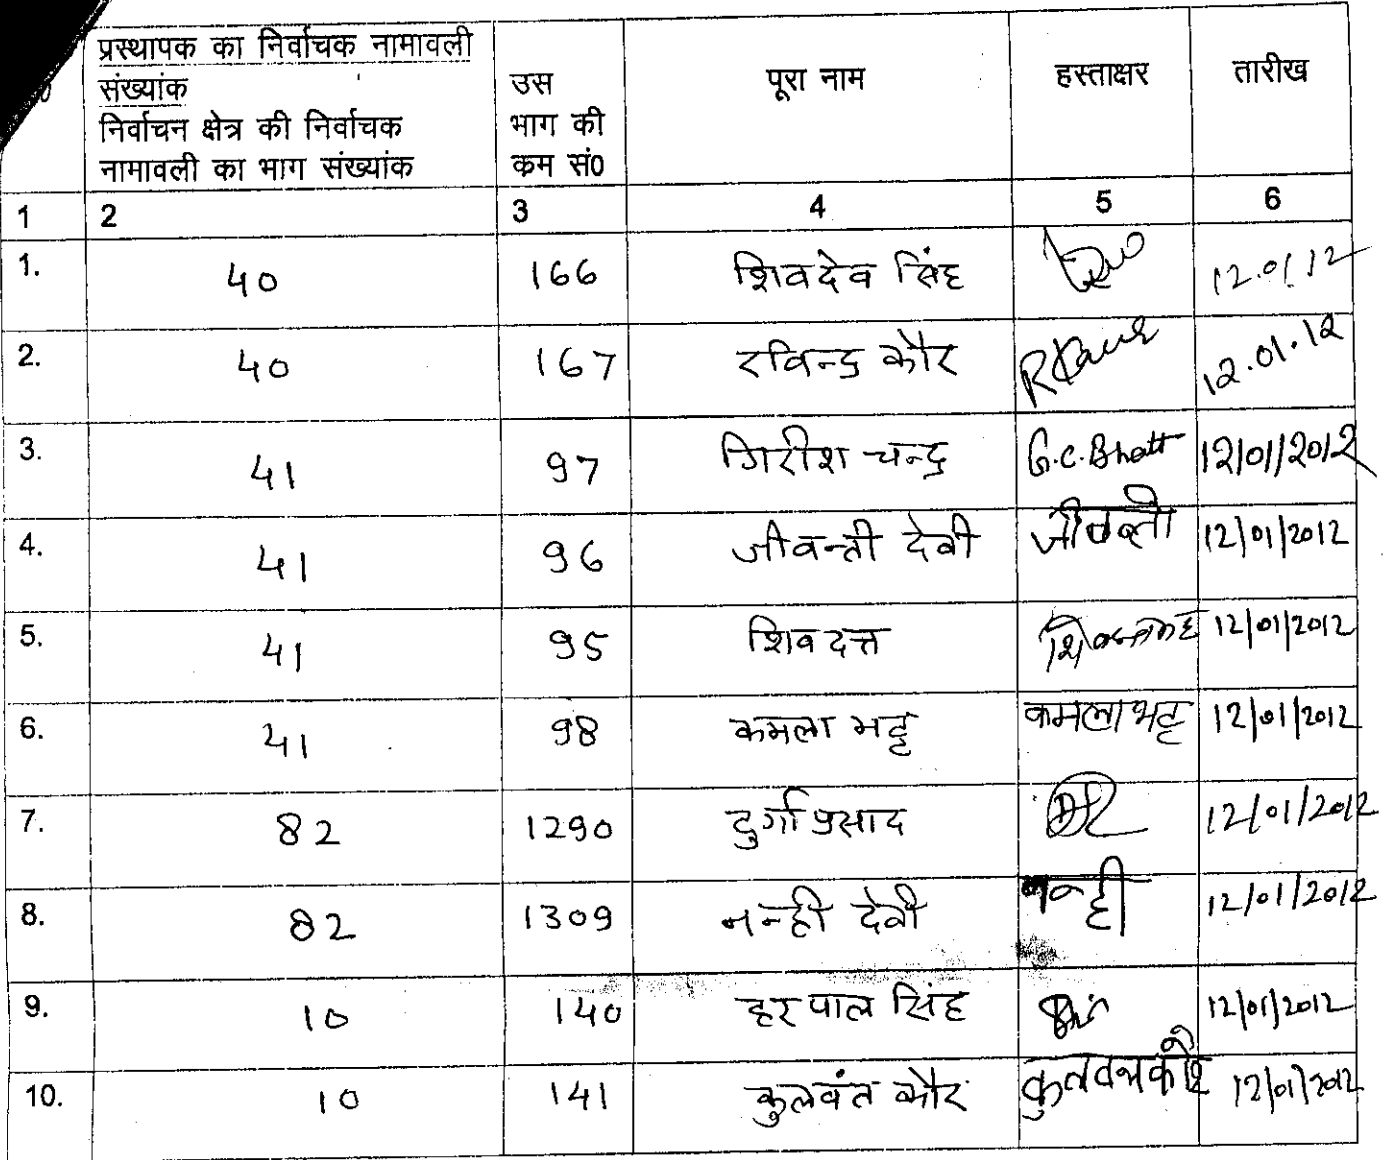 प्रस्थापक का निर्वाचक नामावली
संख्यांक
निर्वाचन क्षेत्र की निर्वाचक
नामावली का भाग संख्यांक
उस
भाग की
कम सं0
पूरा नाम
हस्ताक्षर
तारीख
1 2 3 4 5 6
1. 40 166 शिवदेव सिंह 12.01.12
2. 40 167 रविन्द्र कौर RKaur 12.01.12
3. 41 97 गिरीश चन्द्र G.C.Bhatt 12/01/2012
4. 41 96 जीवन्ती देवी जीवन्ती 12/01/2012
5. 41 95 शिवदत्त 12/01/2012
6. 41 98 कमला भट्ट कमला भट्ट 12/01/2012
7. 82 1290 दुर्गा प्रसाद 12/01/2012
8. 82 1309 नन्ही देवी नन्ही 12/01/2012
9. 10 140 हरपाल सिंह 12/01/2012
10. 10 141 कुलवंत कौर 12/01/2012